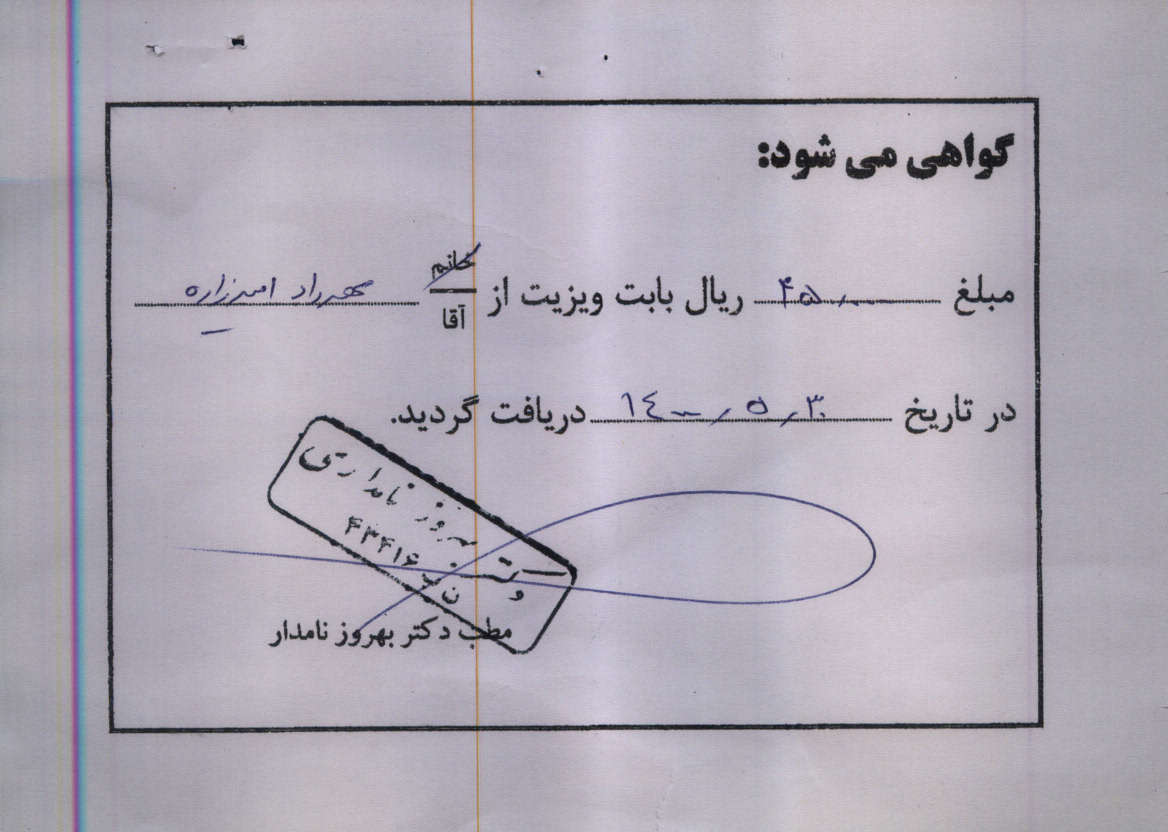 گواهی می شود:
مبلغ ۴۵۰۰۰۰ ریال بابت ویزیت از خانم/آقا مهرداد امیرزاده
در تاریخ ۱۴۰۰/۵/۳۰ دریافت گردید.
دکتر بهروز نامداری
ن پ ۴۳۴۱۶
مطب دکتر بهروز نامدار